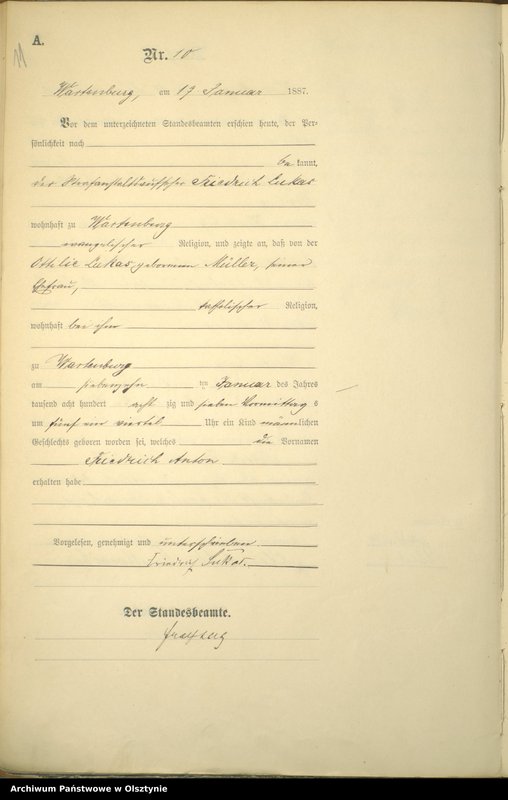 A.
11
Nr. 10
Wartenburg, am 17 Januar 1887.
Vor dem unterzeichneten Standesbeamten erschien heute, der Per-
sönlichkeit nach
be kannt,
der Strafanstaltsaufseher Friedrich Lukas
wohnhaft zu Wartenburg
evangelischer Religion, und zeigte an, daß von der
Ottilie Lukas, geborenen Müller, seiner
Ehefrau,
katholischer Religion,
wohnhaft bei ihm
zu Wartenburg
am siebenzehn ten Januar des Jahres
tausend acht hundert acht zig und sieben Vormittag s
um fünf ein viertel Uhr ein Kind männlichen
Geschlechts geboren worden sei, welches die Vornamen
Friedrich Anton
erhalten habe
Vorgelesen, genehmigt und unterschrieben
Friedrich Lukas.
Der Standesbeamte.
Archiwum Państwowe w Olsztynie